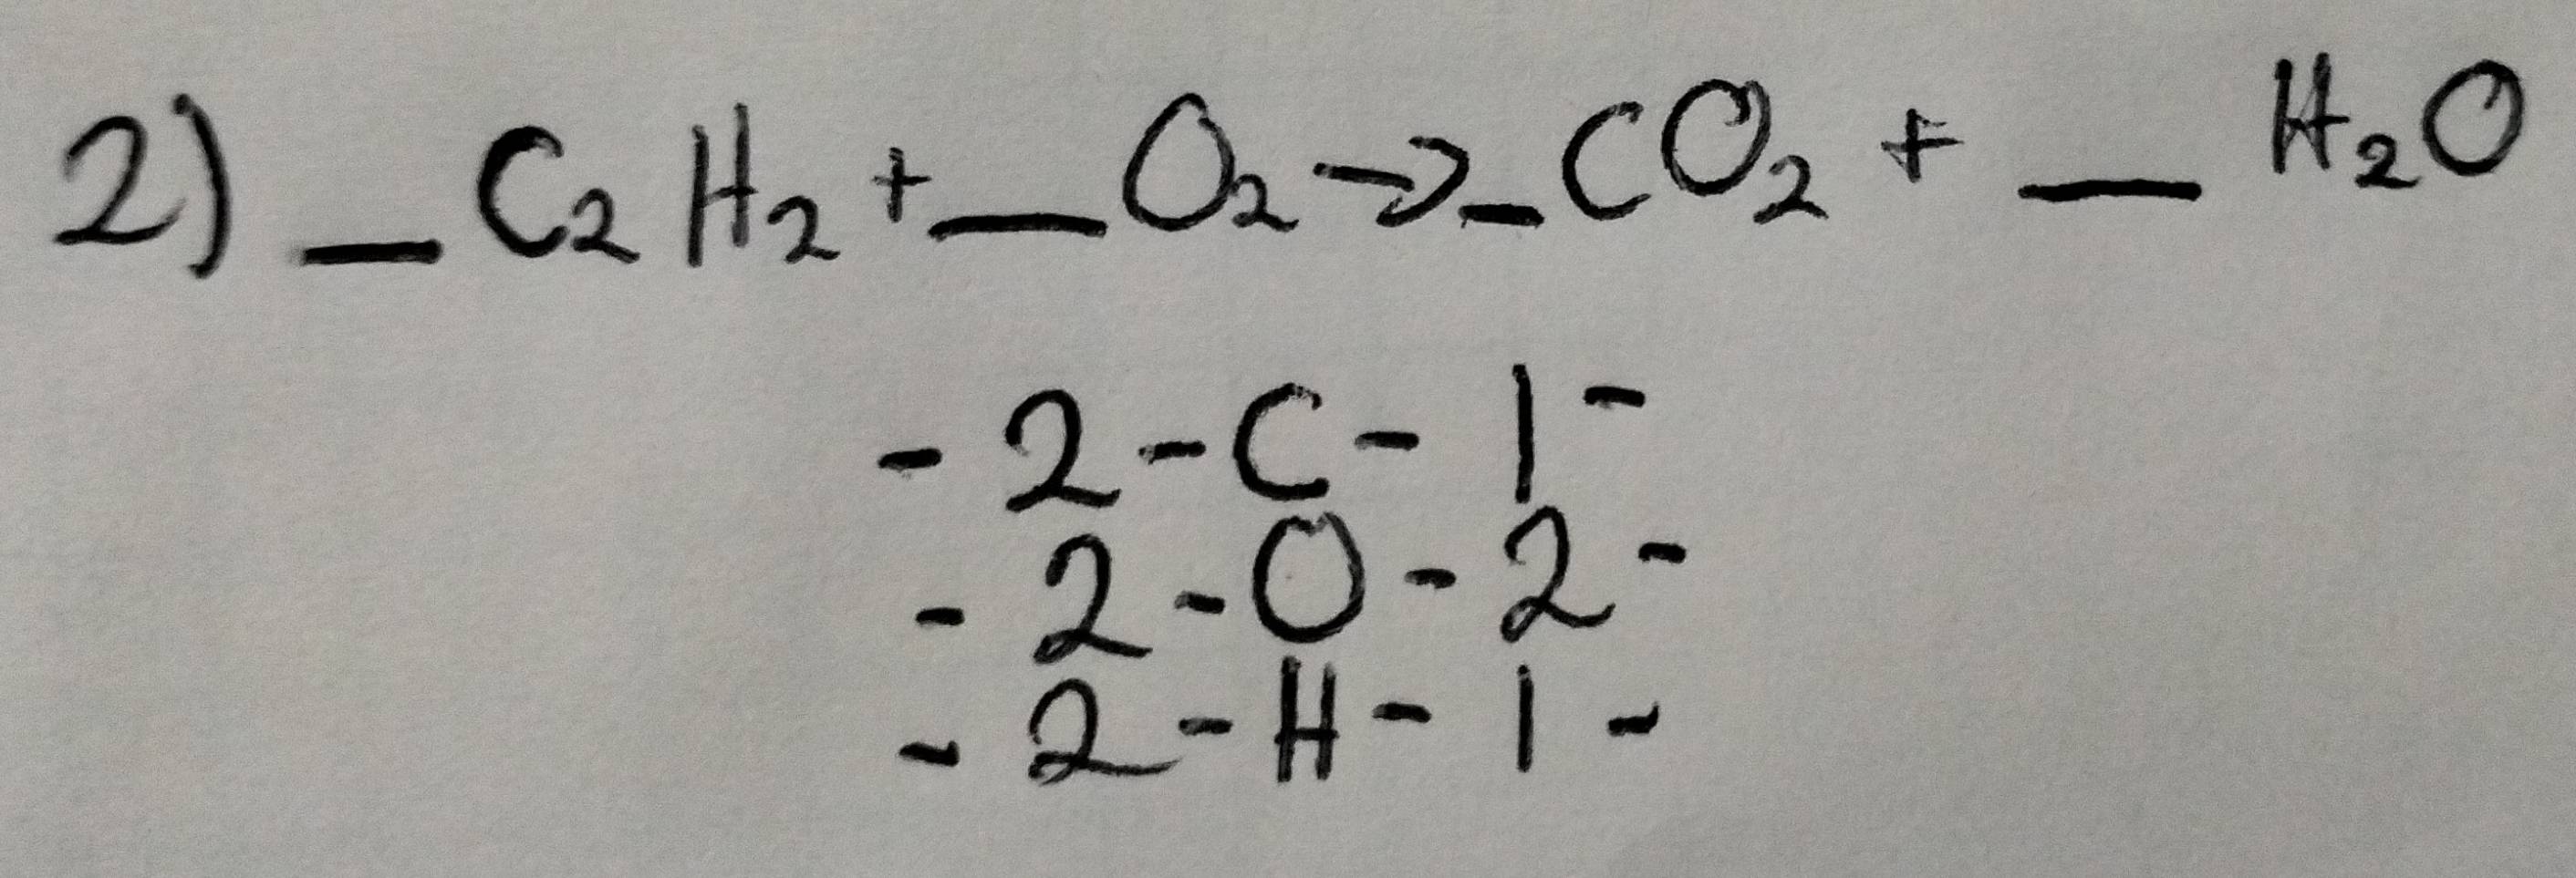 2) _ C₂ H₂ + __ O₂ → _ CO₂ + __ H₂O
- 2 - C - 1 -
- 2 - O - 2 -
- 2 - H - 1 -